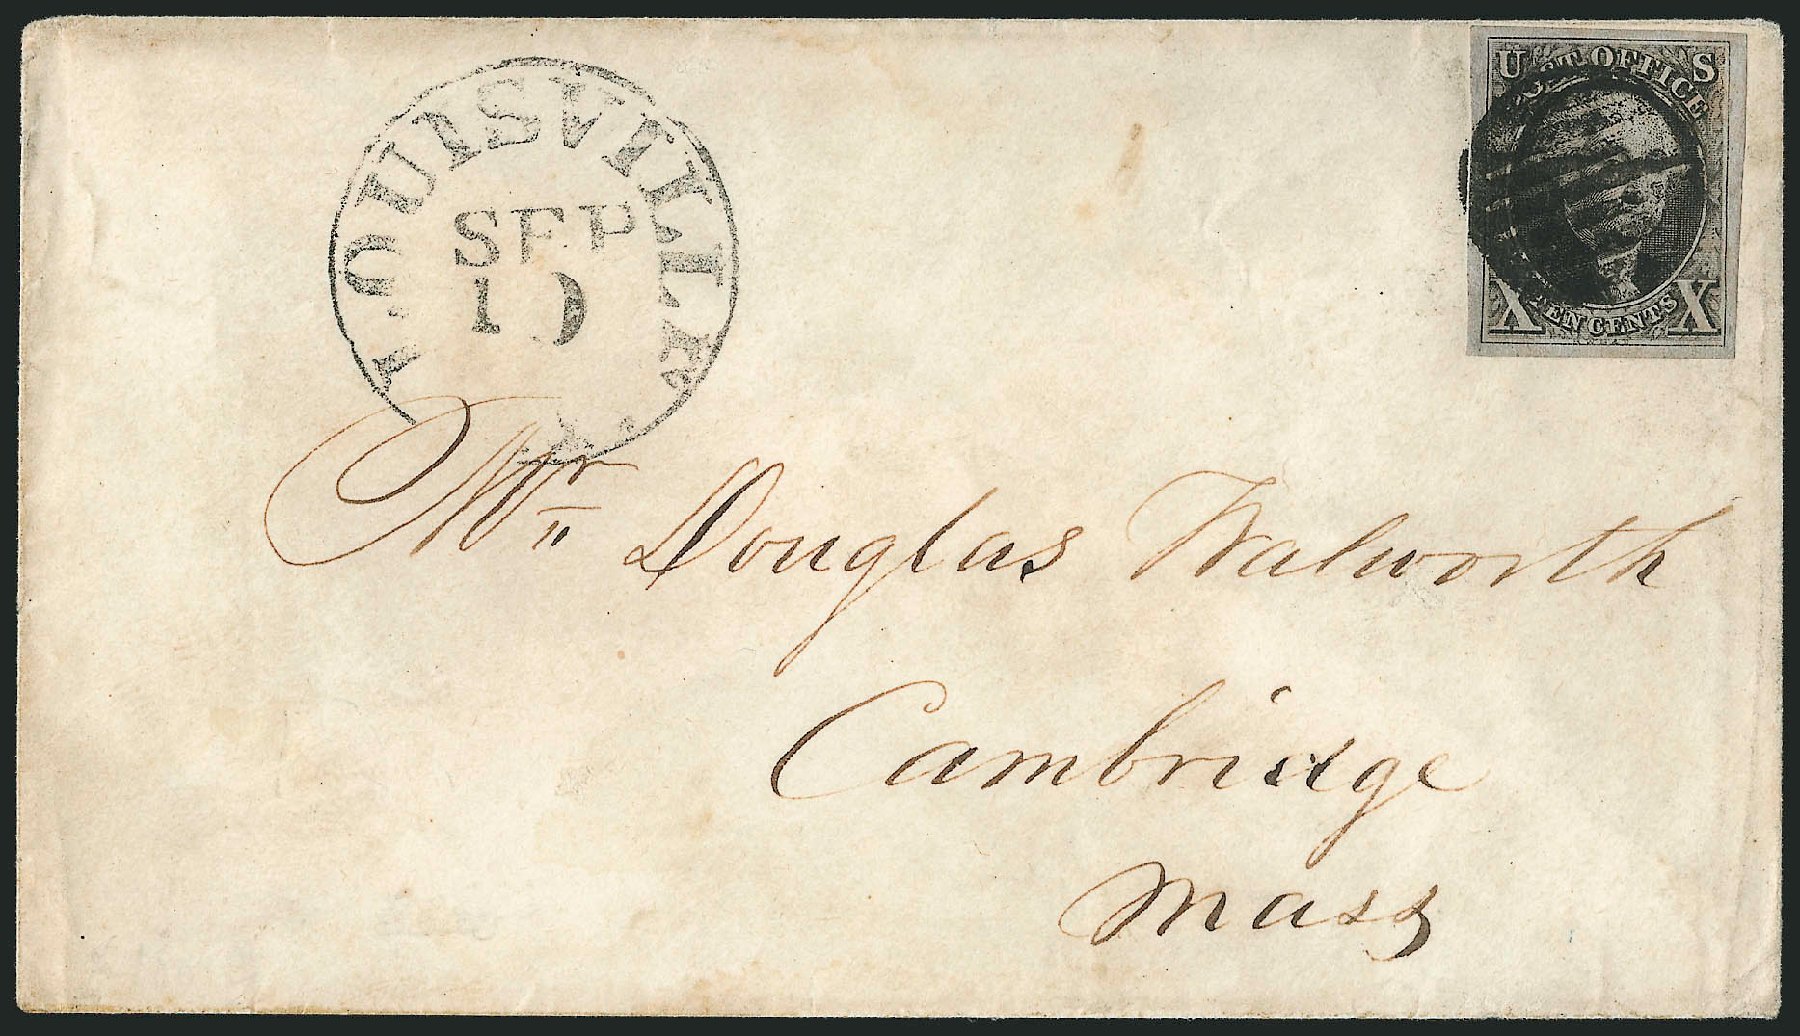 LOUISVILLE
SEP
10
U POST OFFICE S
X TEN CENTS X
Mr Douglas Walworth
Cambridge
Mass